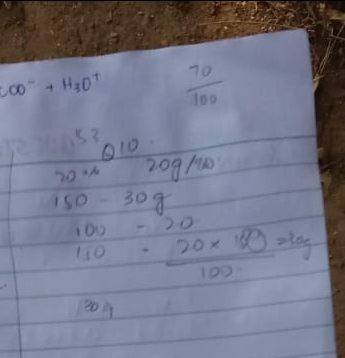 COO⁻ + H₃O⁺
70
100
Q10
20% 20g/100
150 - 30g
100 - 20
150 - 20 × 150 = 30g
100
30g